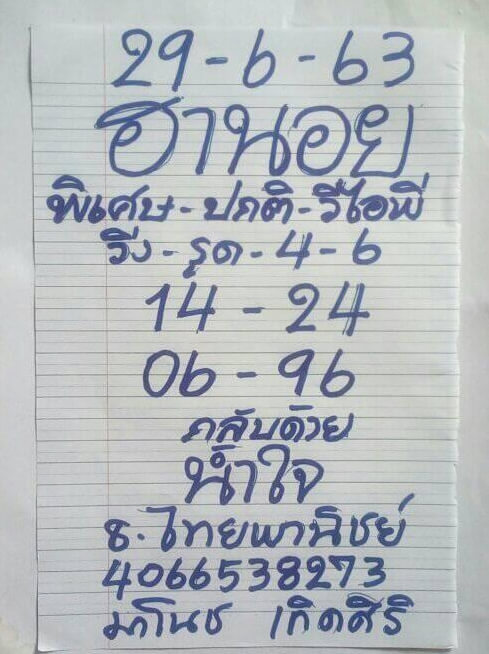 29-6-63
ฮานอย
พิเศษ-ปกติ-วีไอพี
วิ่ง-รูด-4-6
14-24
06-96
กลับด้วย
น้ำใจ
ธ.ไทยพานิชย์
4066538273
มาโนช เกิดศิริ